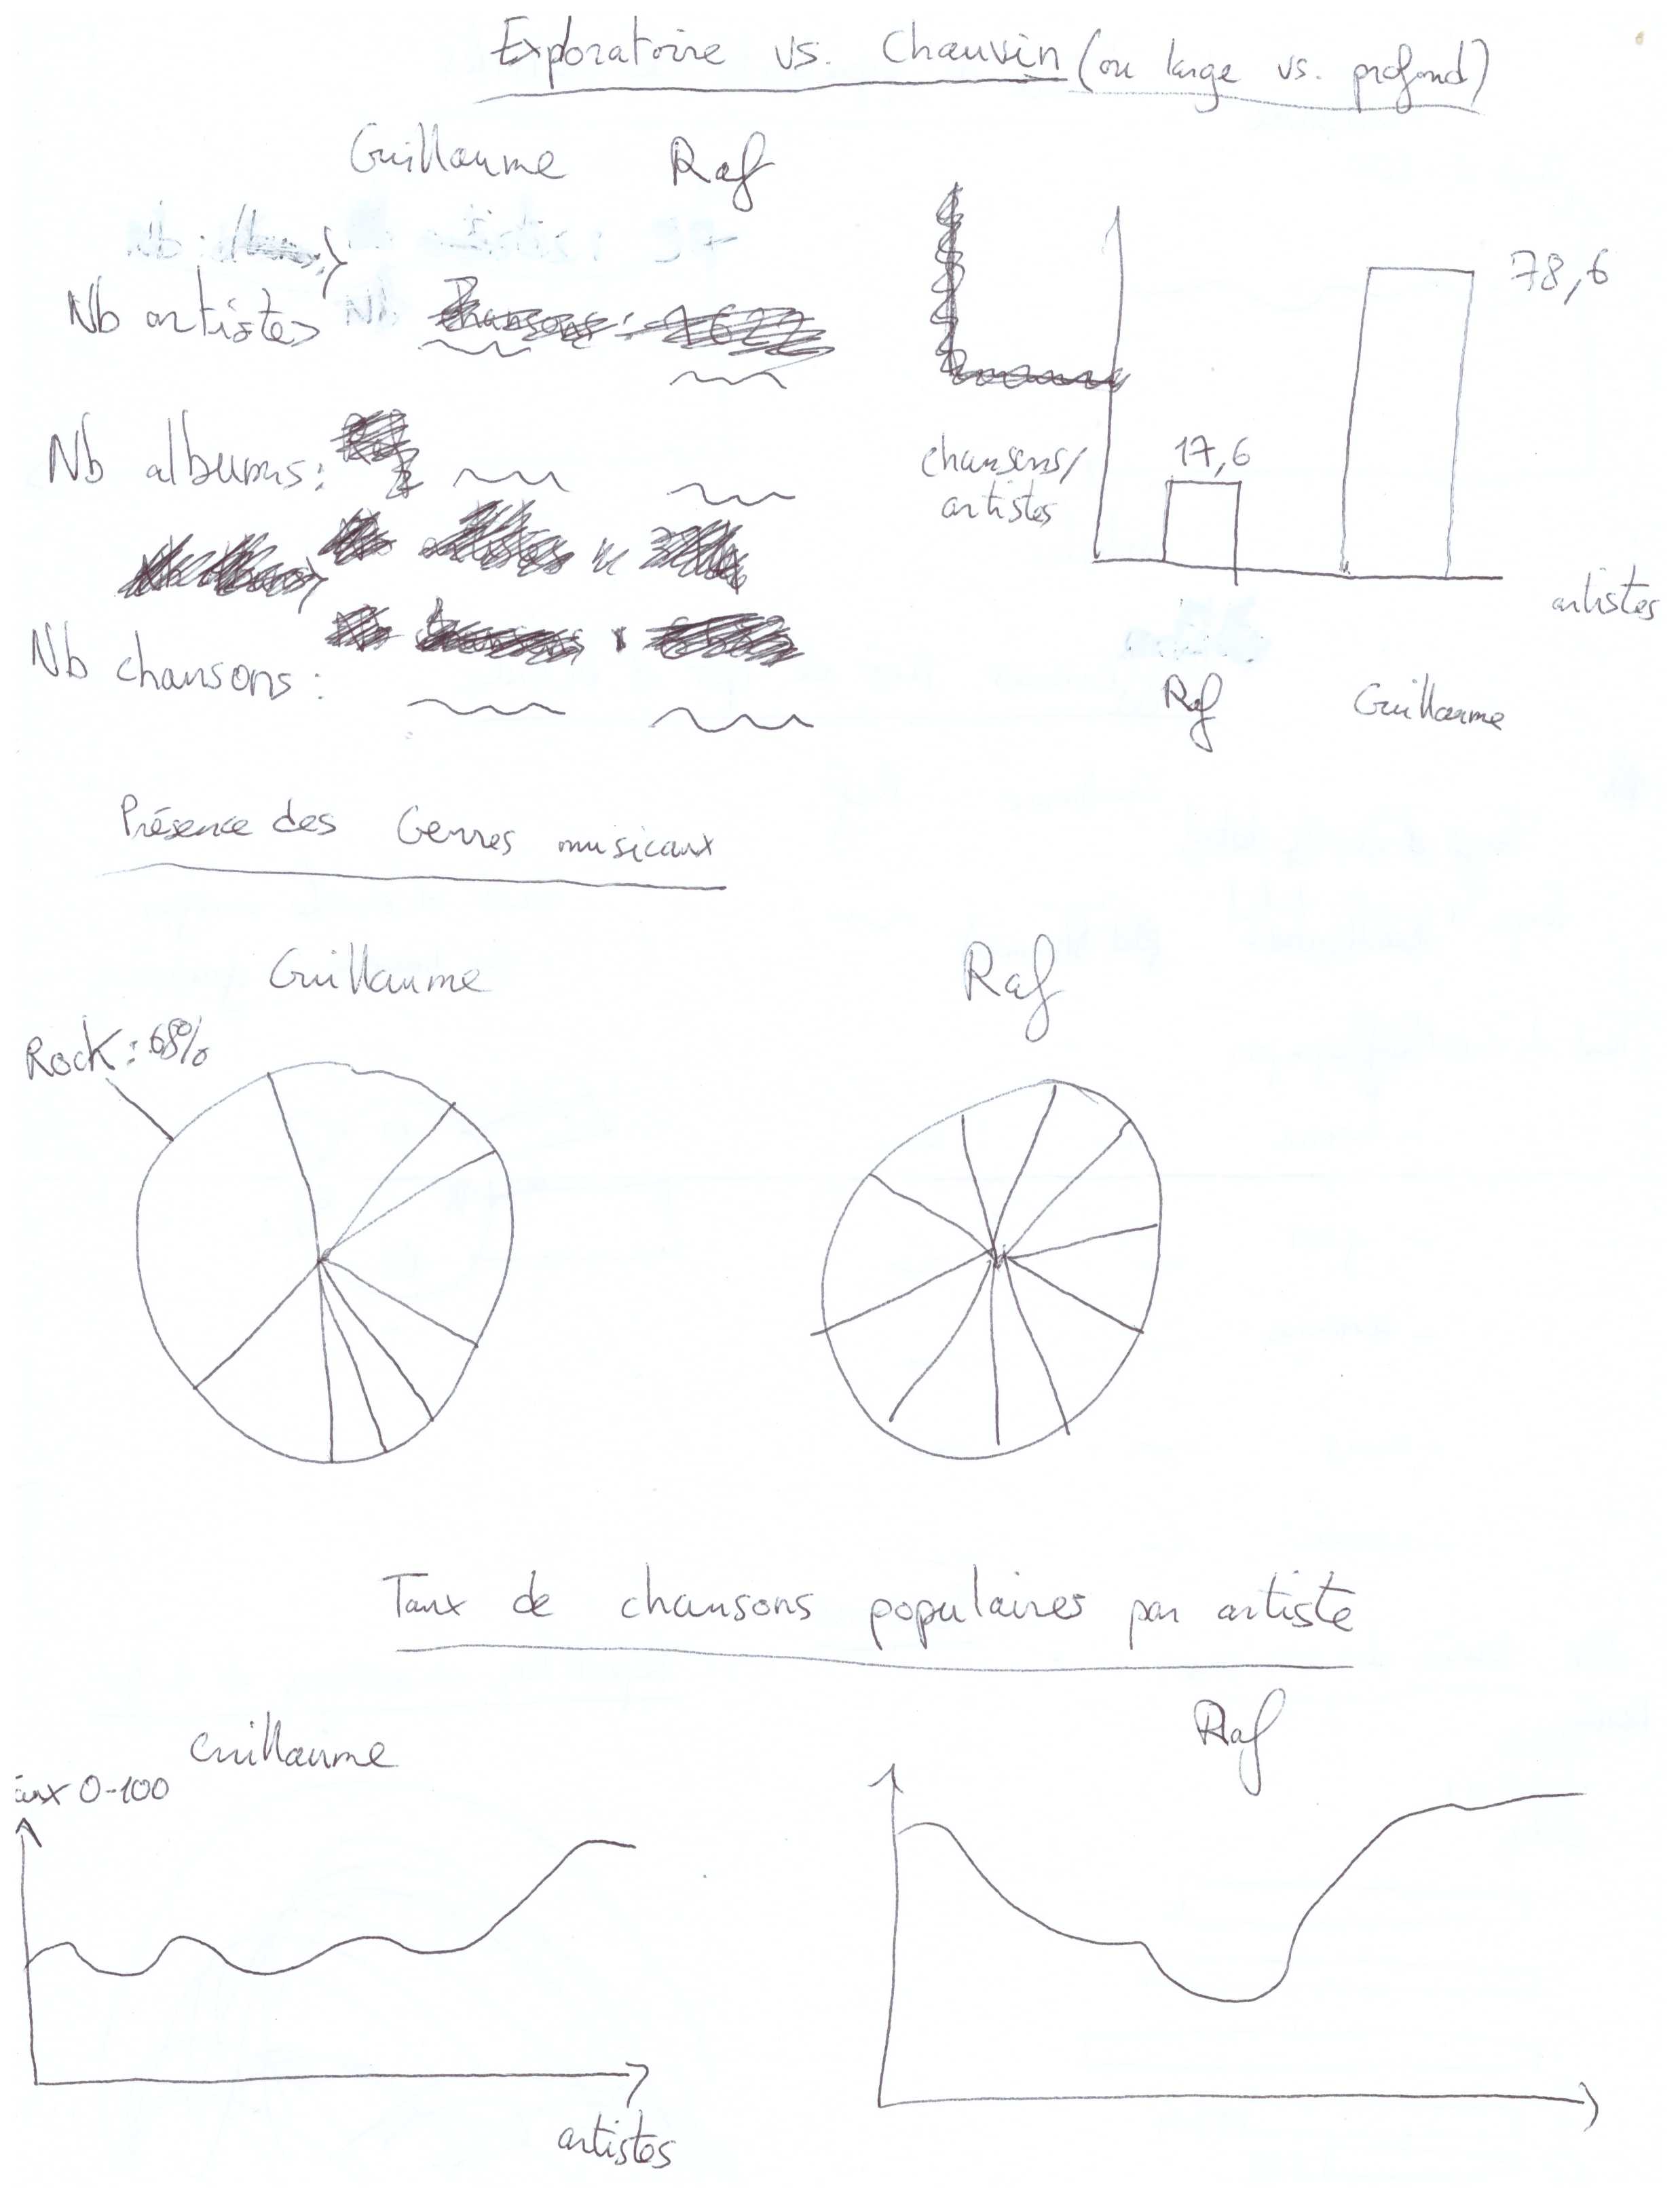 Exploratoire vs. Chauvin (ou large vs. profond)
Guillaume Raf
Nb artistes
chansons: 1622
Nb albums:
Nb chansons:
78,6
17,6
chansons/
artistes
artistes
Raf Guillaume
Présence des Genres musicaux
Guillaume Raf
Rock: 68%
Taux de chansons populaires par artiste
Guillaume Raf
aux 0-100
artistes